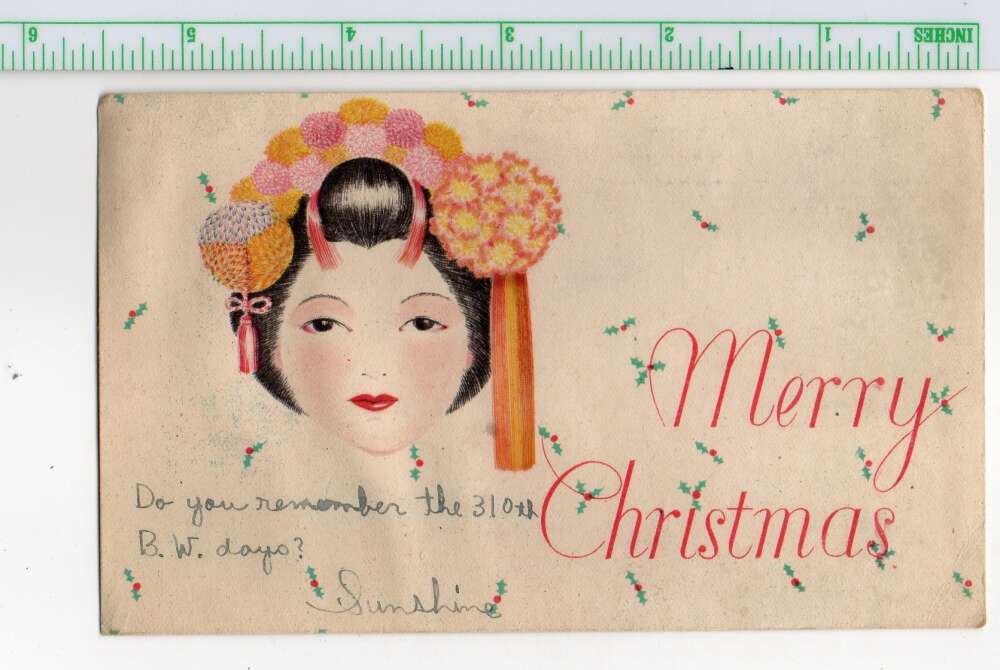 INCHES 1 2 3 4 5 6
Merry
Christmas
Do you remember the 310th
B.W. days?
Sunshine